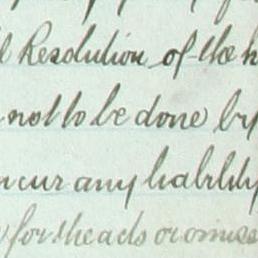 l Resolution of the h
not to be done by
ncur any liability
for the acts or omiss